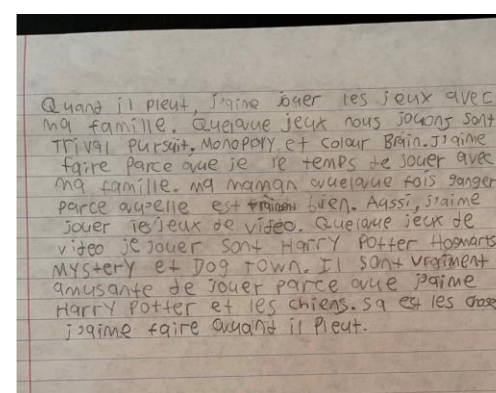 Quand il pleut, j'aime jouer les jeux avec
ma famille. Quelque jeux nous jouons sont
Trival pursuit, Monopoly et Colour Brain. J'aime
faire parce que je le temps de jouer avec
ma famille. ma maman quelque fois ganger
parce qu'elle est bien. Aussi, j'aime
jouer les jeux de video. Quelque jeux de
video je jouer sont Harry Potter Hogwarts
Mystery et Dog Town. Il sont vraiment
amusante de jouer parce que j'aime
Harry Potter et les chiens. sa est les chose
j'aime faire quand il Pleut.